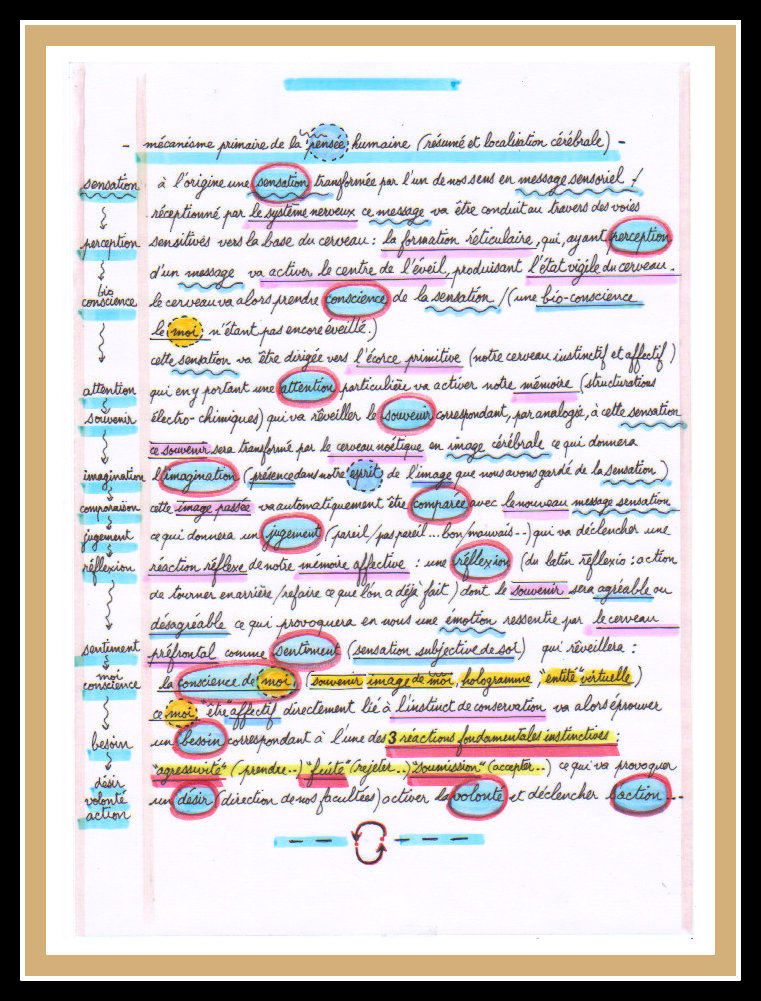 - mécanisme primaire de la pensée humaine (résumé et localisation cérébrale) -
sensation
à l'origine une sensation transformée par l'un de nos sens en message sensoriel !
réceptionné par le système nerveux ce message va être conduit au travers des voies
perception
sensitives vers la base du cerveau : la formation réticulaire, qui, ayant perception
d'un message va activer le centre de l'éveil, produisant l'état vigile du cerveau.
bio
conscience
le cerveau va alors prendre conscience de la sensation / (une bio-conscience
le moi, n'étant pas encore éveillé.)
cette sensation va être dirigée vers l'écorce primitive (notre cerveau instinctif et affectif)
attention
qui en y portant une attention particulière va activer notre mémoire (structurations
souvenir
électro-chimiques) qui va réveiller le souvenir correspondant, par analogie, à cette sensation
ce souvenir sera transformé par le cerveau noétique en image cérébrale ce qui donnera
imagination
l'imagination (présence dans notre "esprit" de l'image que nous avons gardé de la sensation)
comparaison
cette image passée va automatiquement être comparée avec le nouveau message sensation
jugement
ce qui donnera un jugement (pareil/pas pareil... bon/mauvais..) qui va déclencher une
réflexion
réaction réflexe de notre mémoire affective : une réflexion (du latin réflexio : action
de tourner en arrière/refaire ce que l'on a déjà fait) dont le souvenir sera agréable ou
désagréable ce qui provoquera en nous une émotion ressentie par le cerveau
sentiment
préfrontal comme sentiment (sensation subjective de soi) qui réveillera :
moi
conscience
la conscience de moi, (souvenir image de moi, hologramme, "entité" virtuelle)
ce moi, "être" affectif directement lié à l'instinct de conservation va alors éprouver
besoin
un besoin correspondant à l'une des 3 réactions fondamentales instinctives :
"agressivité" (prendre..) "fuite" (rejeter..) "soumission" (accepter..) ce qui va provoquer
désir
volonté
action
un désir (direction de nos facultées) activer la volonté et déclencher l'action ...